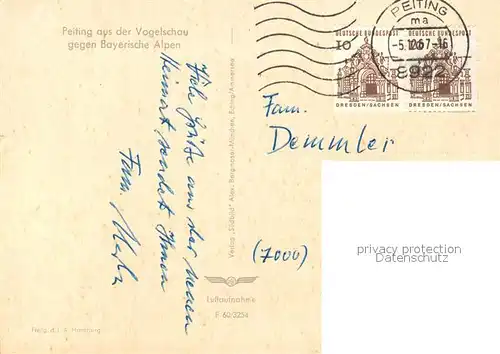 Peiting aus der Vogelschau
gegen Bayerische Alpen
Viele Grüße aus der neuen
Heimat sendet Ihnen
Fam.
Verlag „Südbild"
Luftaufnahme
F 60/3254
PEITING
ma
-5.12.67-16
8922
DEUTSCHE BUNDESPOST
10
DRESDEN/SACHSEN
DEUTSCHE BUNDESPOST
DRESDEN/SACHSEN
Fam.
Demmler
(7000)
privacy protection
Datenschutz